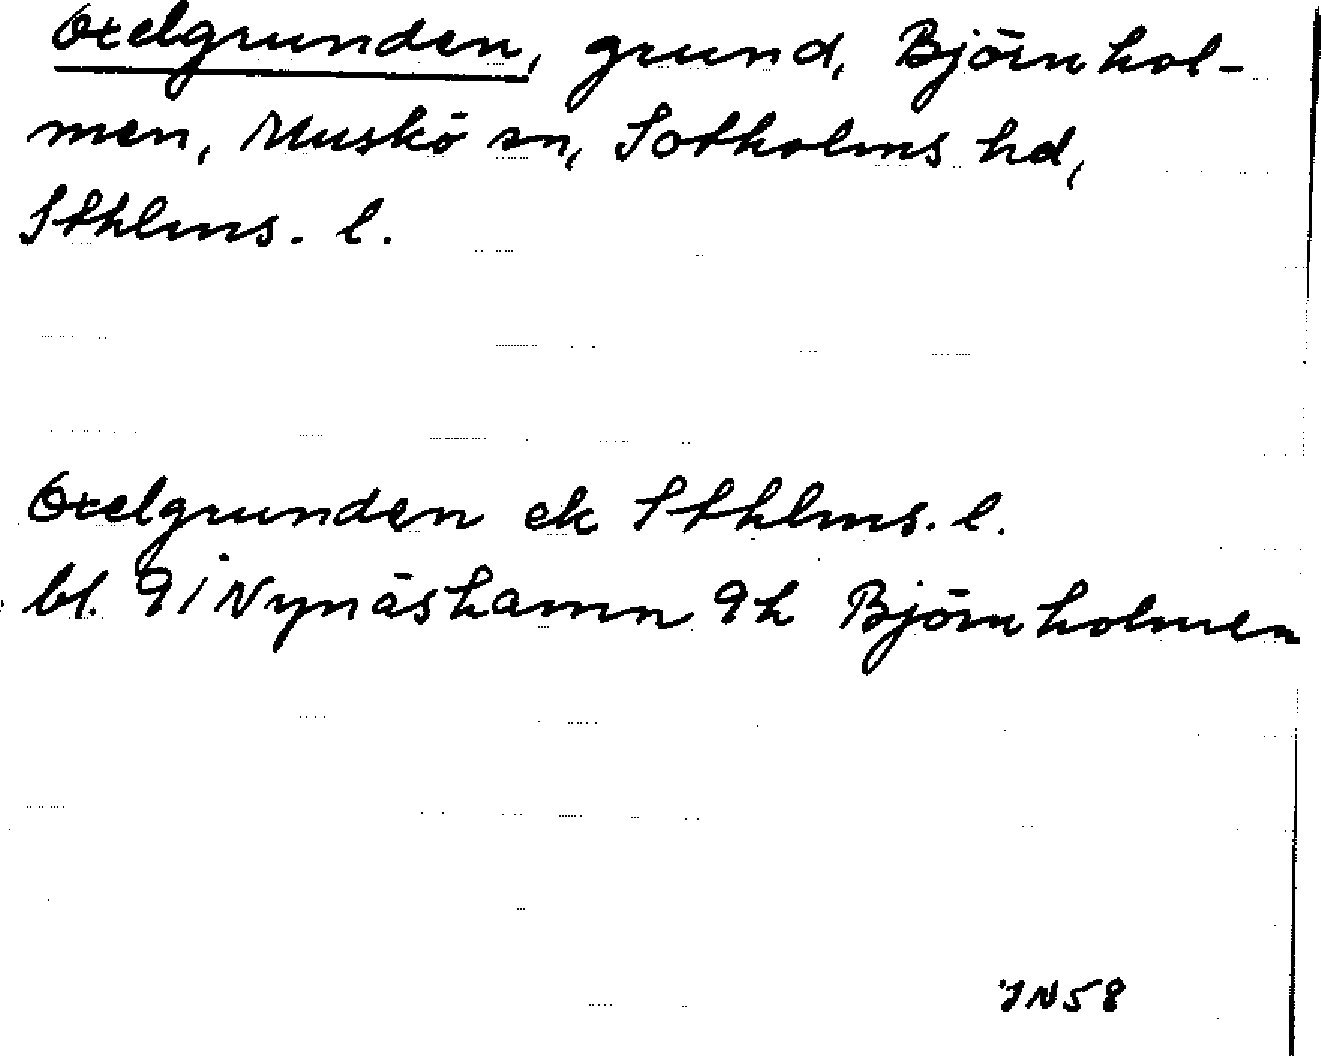 Oxelgrunden, grund, Björnhol-
men, Muskö sn, Sotholms hd,
Sthlms. l.
Oxelgrunden ek Sthlms. l.
bl. 9 i Nynäshamn 9h Björnholmen
JN58